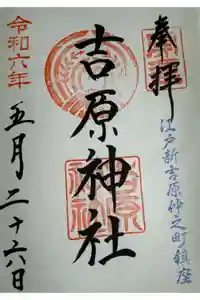 奉拝
江戸新吉原仲之町鎮座
吉原神社
令和六年
五月二十六日